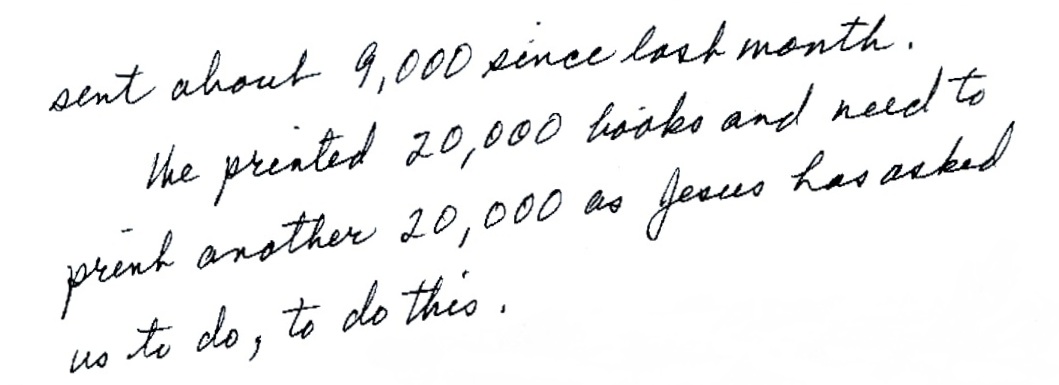 sent about 9,000 since last month.
We printed 20,000 books and need to
print another 20,000 as Jesus has asked
us to do, to do this.